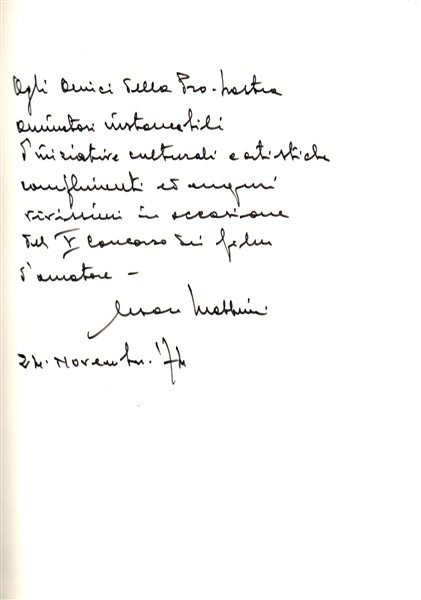 Agli amici della Pro-Lastra
animatori instancabili
d'iniziative culturali e artistiche
complimenti ed auguri
vivissimi in occasione
del V Concorso dei films
d'amatore –
24. Novembre. '74